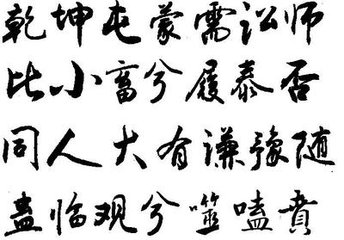 乾坤屯蒙需讼师
比小畜兮履泰否
同人大有谦豫随
蛊临观兮噬嗑贲